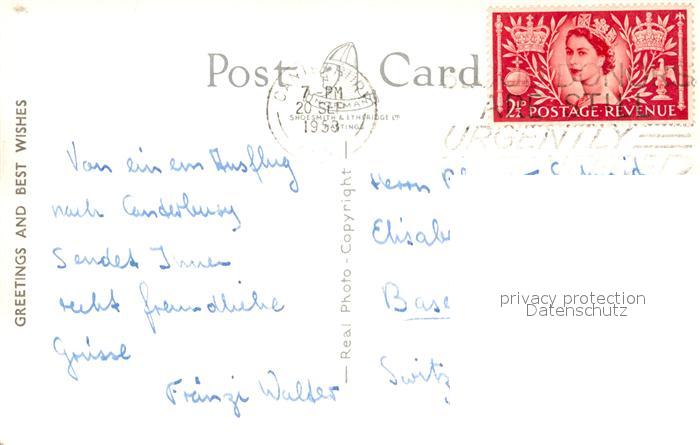 Post Card
GREETINGS AND BEST WISHES
CANTERBURY
7 - PM
20 SEP
1953
SHOESMITH & ETHERIDGE LTD
HASTINGS
2½D POSTAGE·REVENUE
DONORS
ARE STILL
URGENTLY
Von einem Ausflug
nach Canderbury
Sendet Ihnen
recht freundliche
Grüsse
Fränzi Walder
Real Photo - Copyright
Herrn
Elisab
Base
Switz
privacy protection
Datenschutz